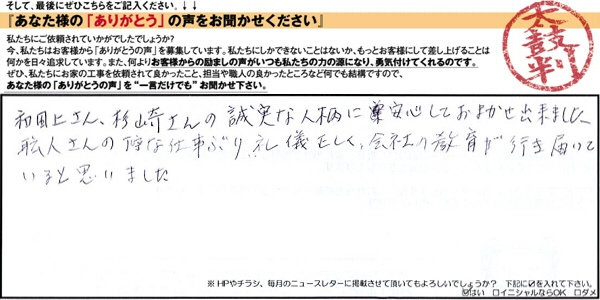 そして、最後にぜひこちらをご記入ください。↓↓
『あなた様の「ありがとう」の声をお聞かせください』
私たちにご依頼されていかがでしたでしょうか?
今、私たちはお客様から「ありがとうの声」を募集しています。私たちにしかできないことはないか、もっとお客様にして差し上げることは
何かを日々追求しています。また、何よりお客様からの励ましの声がいつも私たちの力の源になり、勇気付けてくれるのです。
ぜひ、私たちにお家の工事を依頼されて良かったこと、担当や職人の良かったところなど何でも結構ですので、
あなた様の「ありがとうの声」を“一言だけでも”お聞かせ下さい。
太鼓判
和田上さん、杉山寄さんの誠実な人柄に安心しておまかせ出来ました
職人さんの仕事ぶり、礼儀正しく、会社の教育が行き届いて
いると思いました
※HPやチラシ、毎月のニュースレターに掲載させて頂いてもよろしいでしょうか? 下記に☑を入れて下さい。
☑はい ロイニシャルならOK ロダメ